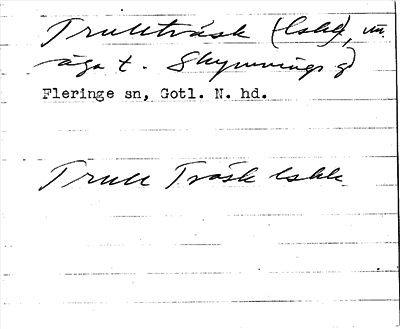 Trullträsk (lskl), un.
äga t. Skymnings g)
Fleringe sn, Gotl. N. hd.
Trull Träsk lskk